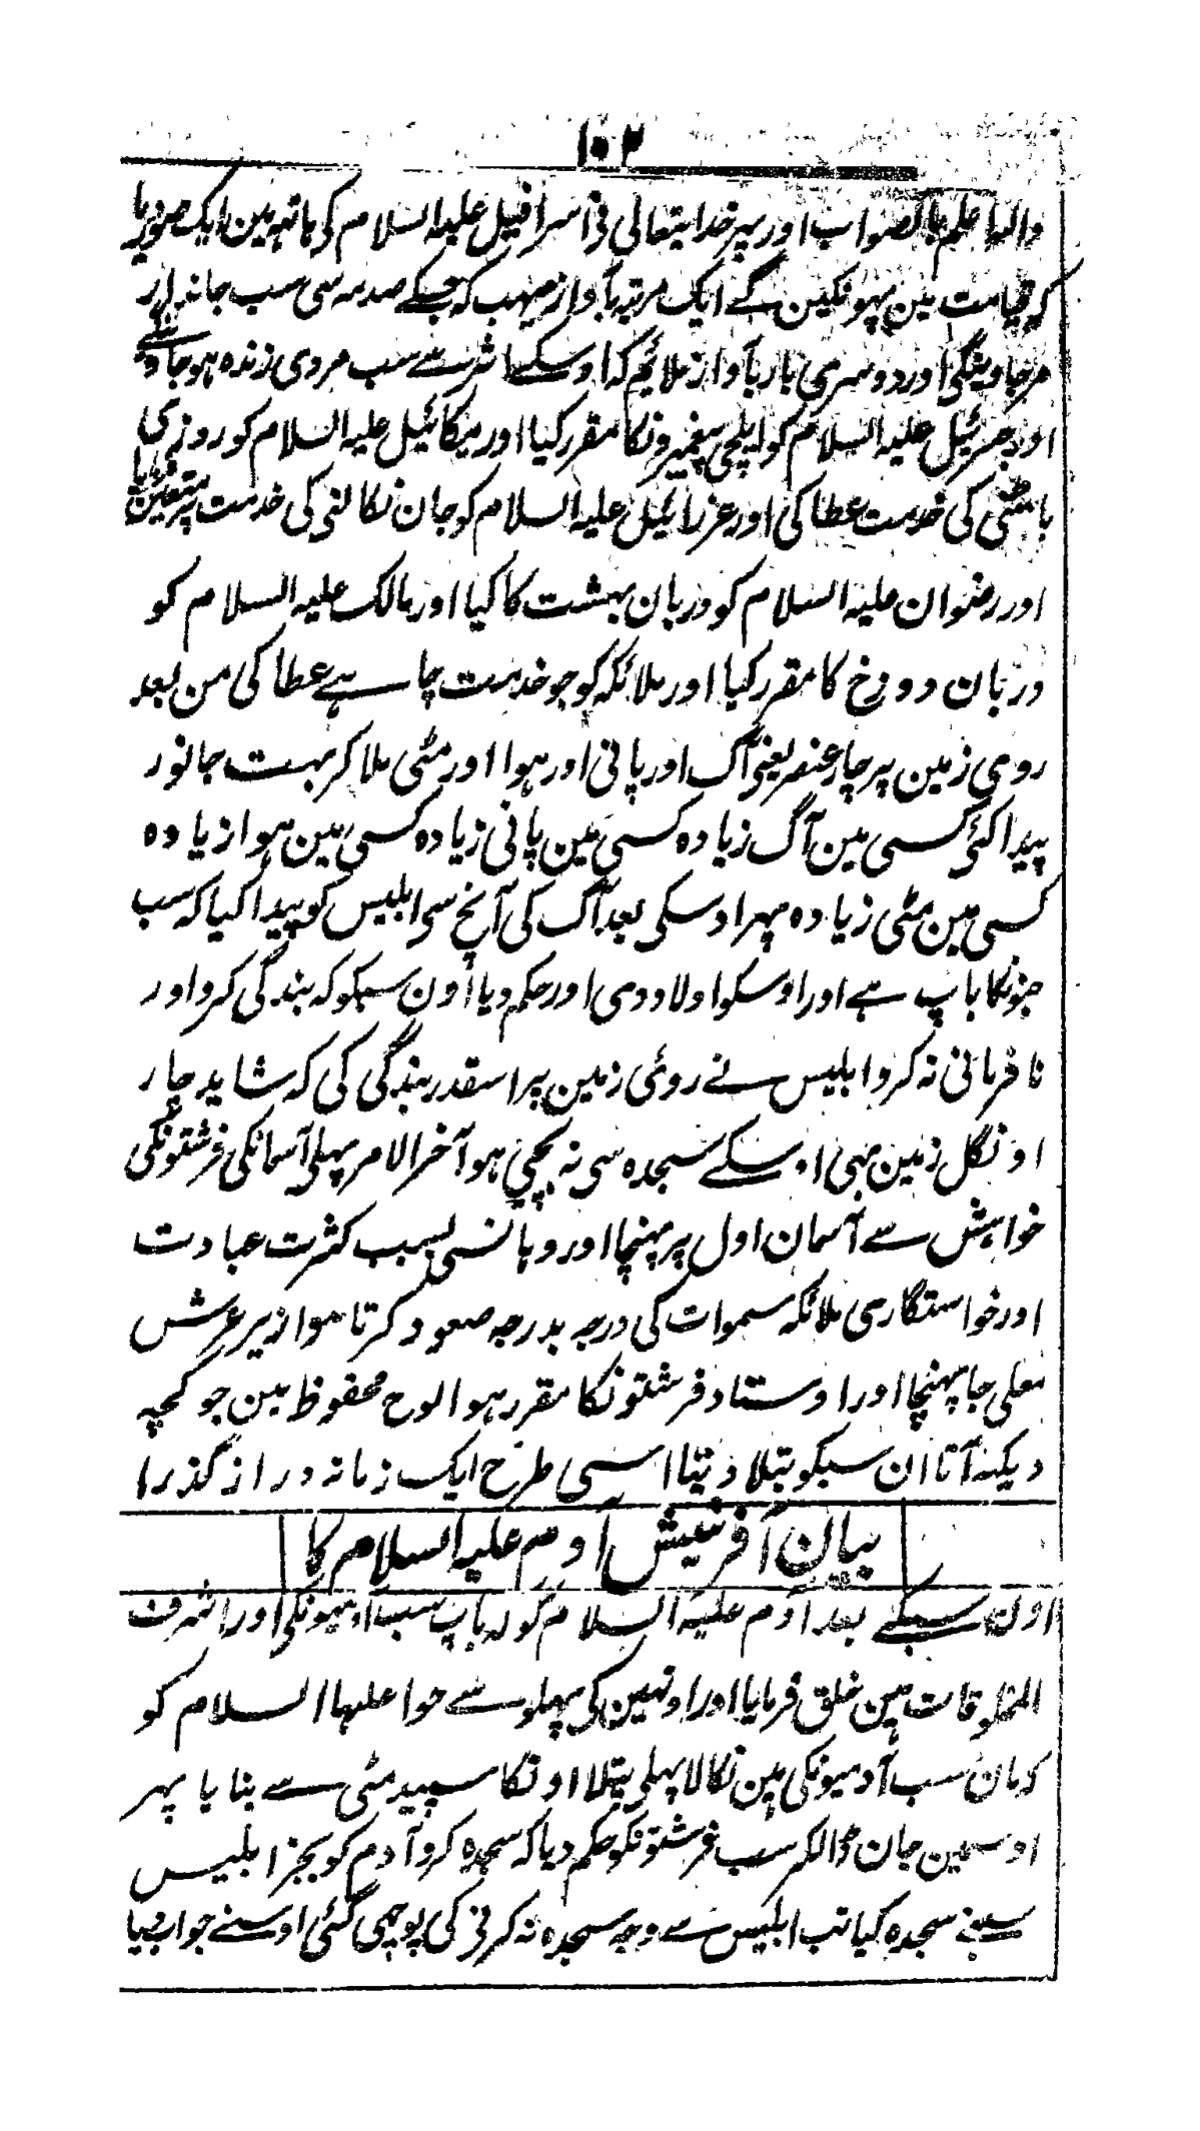 ۱۰۲
واللہ اعلم بالصواب اور پہر خدایتعالی نی اسرافیل علیہ السلام کی ہاتہہ مین ایک صور دیا
کہ قیامت مین پہونکین گے ایک مرتبہ بآواز مہیب کہ جسکے صدمہ سی سب جاندار
مرجاوینگی اور دوسری بار بآواز ملائیم کہ اوسکے اثر سے سب مردی زندہ ہوجاوینگے
اور جبرئیل علیہ السلام کو ایلچی پیغمبرونکا مقرر کیا اور میکائیل علیہ السلام کو روزی
بانٹنی کی خدمت عطا کی اور عزرائیل علیہ السلام کو جان نکالنی کی خدمت پر متعین کیا
اور رضوان علیہ السلام کو دربان بہشت کا کیا اور مالک علیہ السلام کو
دربان دوزخ کا مقرر کیا اور ملائکہ کو جو خدمت چاہے عطا کی من بعد
روی زمین پر چار عنصر یعنی آگ اور پانی اور ہوا اور مٹی ملا کر بہت جانور
پیدا کئی کسی مین آگ زیادہ کسی مین پانی زیادہ کسی مین ہوا زیادہ
کسی مین مٹی زیادہ پہر اوسکی بعد آگ کی آنچ سی ابلیس کو پیدا کیا کہ سب
جنونکا باپ ہے اور اوسکو اولاد دی اور حکم دیا اون سبکو کہ بندگی کرو اور
نافرمانی نہ کرو ابلیس نے روئی زمین پر اسقدر بندگی کی کہ شاید چار
اونگل زمین بہی اوسکے سجدہ سی نہ بچی ہو آخر الامر پہلی آسمانکی فرشتونکی
خواہش سے آسمان اول پر پہنچا اور وہانسی بسبب کثرت عبادت
اور خواستگاری ملائکہ سموات کی درجہ بدرجہ صعود کرتا ہوا زیر عرش
معلی جا پہنچا اور اوستاد فرشتونکا مقرر ہوا لوح محفوظ مین جو کچہہ
دیکہہ آتا ان سبکو بتلا دیتا اسی طرح ایک زمانہ دراز گذرا
بیان آفرینش آدم علیہ السلام کا
اون سبکے بعد آدم علیہ السلام کو کہ باپ سب آدمیونکی اور اشرف
المخلوقات ہین خلق فرمایا اور اونہین کی پہلو سے حوا علیہا السلام کو
کہ مان سب آدمیونکی ہین نکالا پہلی پتلا اونکا سپید مٹی سے بنایا پہر
اوسمین جان ڈالکر سب فرشتونکو حکم دیا کہ سجدہ کرو آدم کو بجز ابلیس
سبنے سجدہ کیا تب ابلیس سے وجہ سجدہ نہ کرنی کی پوچہی گئی اوسنے جواب دیا